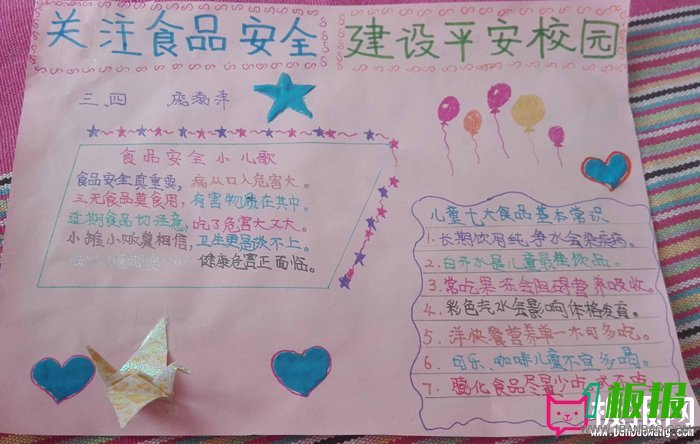 关注食品安全 建设平安校园
三、四
食品安全小儿歌
食品安全真重要，病从口入危害大。
三无食品莫食用，有害物质在其中。
过期食品切注意，吃了危害大又大。
小摊小贩莫相信，卫生更是谈不上。
健康危害正面临。
儿童七大食品基本常识
1.长期饮用纯净水会患疾病。
2.白开水是儿童最佳饮品。
3.常吃果冻会阻碍营养吸收。
4.彩色汽水会影响体格发育。
5.洋快餐营养单一不可多吃。
6.可乐、咖啡儿童不宜多喝。
7.膨化食品尽量少吃或不吃
板报